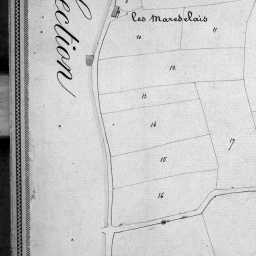 les Maredelais
10
11
12
13
14
15
16
17
Section